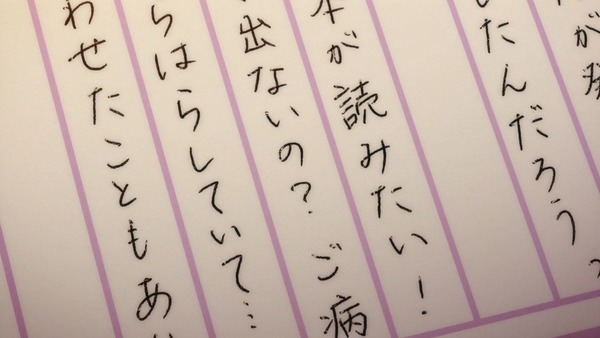 が発
いたんだろう
本が読みたい！
出ないの？ご病
らはらしていて…
わせたこともあ